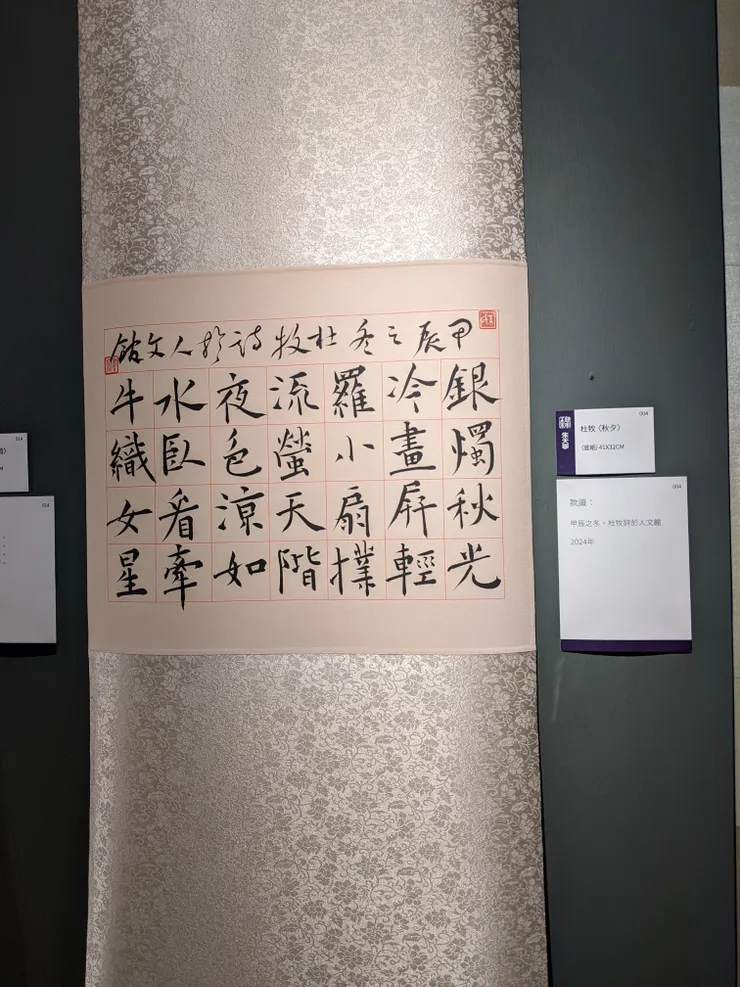 甲辰之冬杜牧詩於人文館
銀燭秋光
冷畫屏輕
羅小扇撲
流螢天階
夜色涼如
水臥看牽
牛織女星
004
杜牧〈秋夕〉
(宣紙) 41X32CM
004
款識：
甲辰之冬，杜牧詩於人文館
2024年
014
014